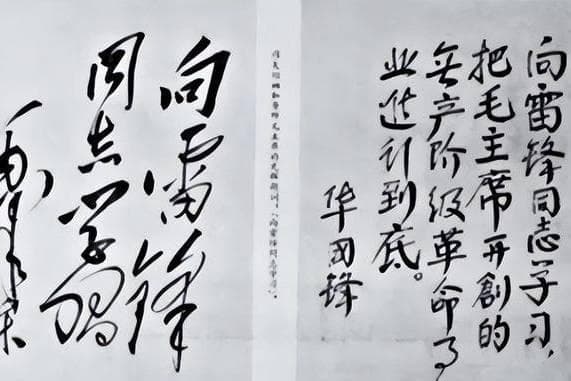 向雷锋同志学习，
把毛主席开創的
無产阶级革命事
业進行到底。
华国锋
向雷锋
同志学习
毛泽东